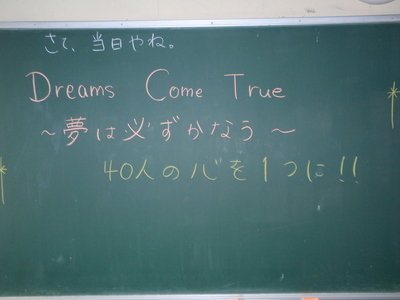 さて、当日やね。
Dreams Come True
～夢は必ずかなう～
40人の心を1つに!!